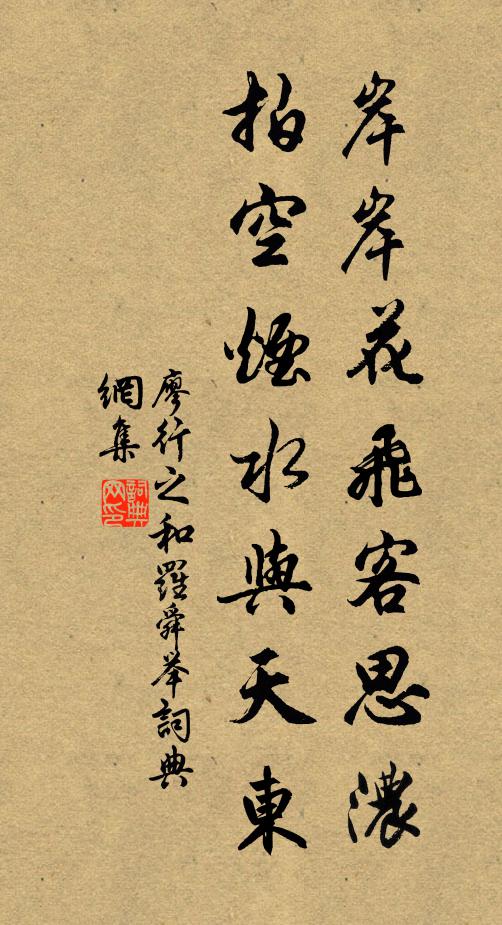 岸岸花飛客思濃
拍空煙水與天東
廖行之和羅舜举詞典
網集
詞典
网印